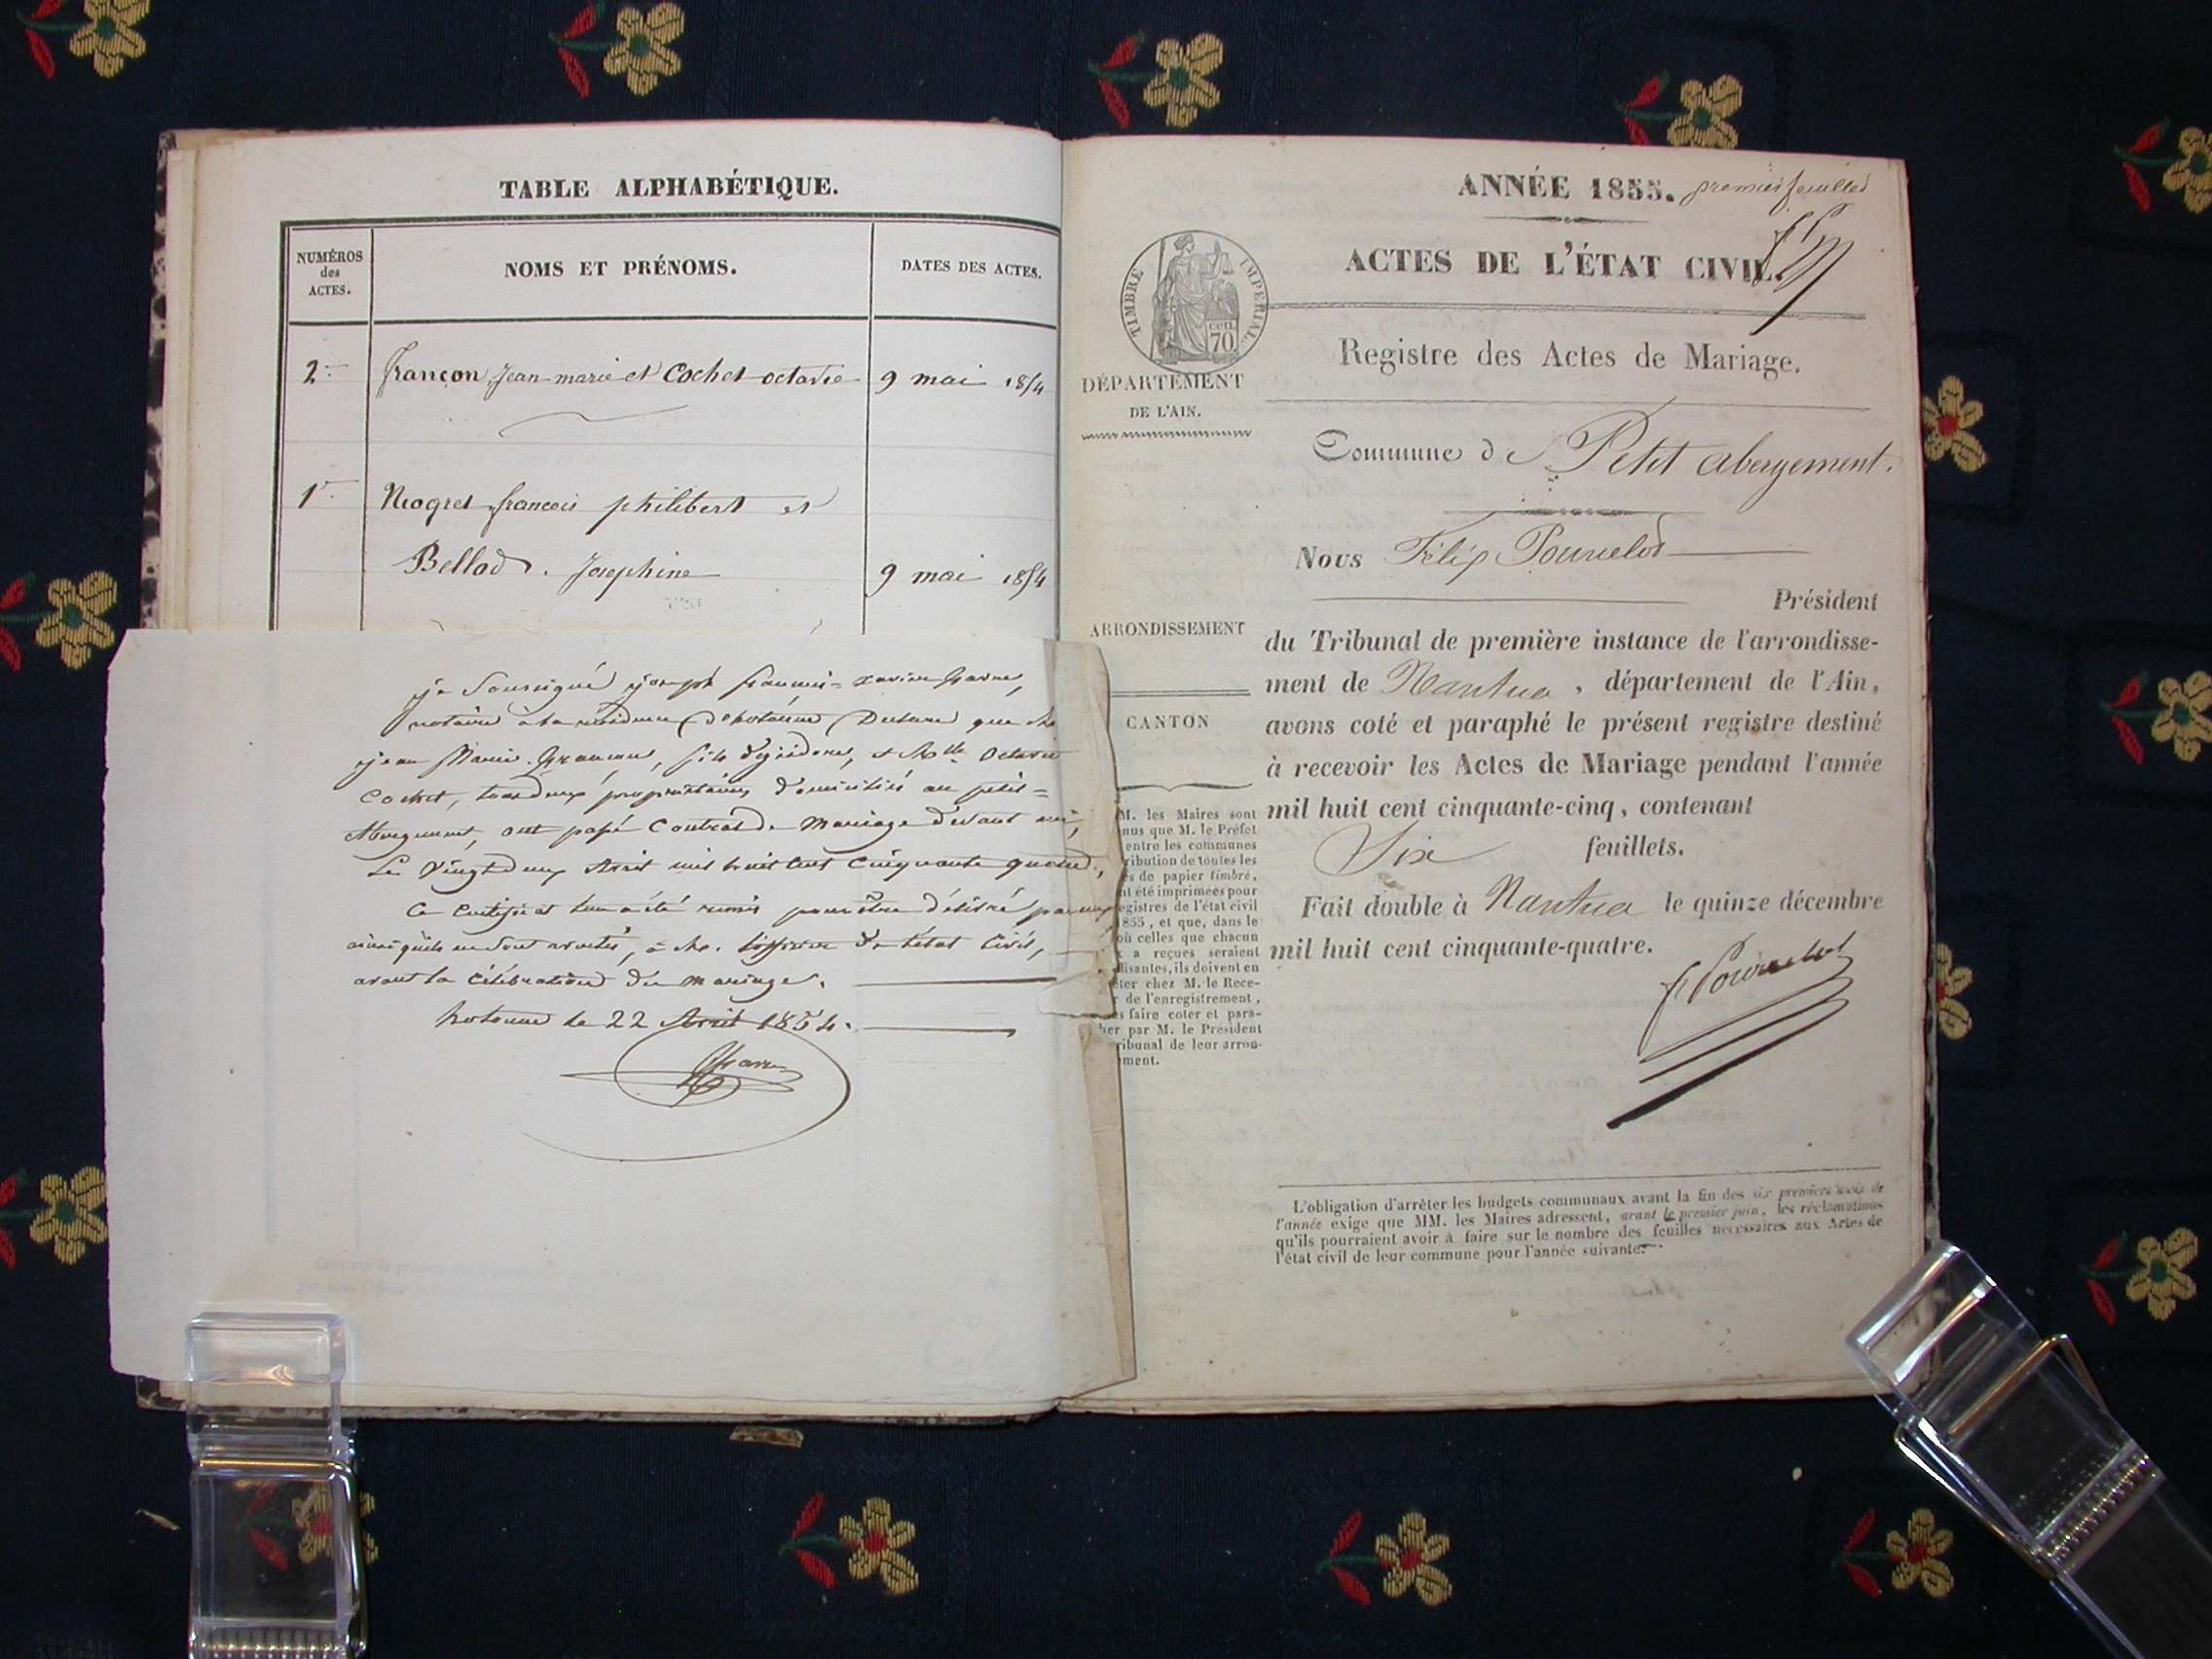 TABLE ALPHABÉTIQUE.
NUMÉROS
des
ACTES.
NOMS ET PRÉNOMS.
DATES DES ACTES.
2
françon Jean-marie et Cochet octavie
9 mai 1854
1
Neogret francois philibert et
Bellod. Josephine
9 mai 1854
je Soussigné joseph françois-xavier
notaire à la résidence d'hotonne Declare que
jean Marie françon, fils d'isidore, & Mlle Octavie
Cochet, tous deux propriétaires domiciliés au petit=
Abergement, ont passé Contrat de Mariage devant moi,
Le Vingt deux Avril mil huit cent Cinquante quatre.
Ce Certificat leur a été remis pour être délivré par eux
ainsi qu'ils en sont avertis, à Mr. l'officier de l'état Civil,
avant la Célébration du mariage.
hotonne le 22 Avril 1854.
ANNÉE 1855. premier feuillet
ACTES DE L'ÉTAT CIVIL.
TIMBRE IMPERIAL
cen.
70
Registre des Actes de Mariage.
DÉPARTEMENT
DE L'AIN.
Commune de Petit abergement.
Nous Félix Pourrelot
Président
ARRONDISSEMENT
du Tribunal de première instance de l'arrondisse-
ment de Nantua, département de l'Ain,
CANTON
avons coté et paraphé le présent registre destiné
à recevoir les Actes de Mariage pendant l'année
mil huit cent cinquante-cinq, contenant
Six feuillets.
Fait double à Nantua le quinze décembre
mil huit cent cinquante-quatre.
F. Pourrelot
M. les Maires sont
nus que M. le Préfet
entre les communes
ribution de toutes les
es de papier timbré,
nt été imprimées pour
egistres de l'état civil
855, et que, dans le
où celles que chacun
x a reçues seraient
ffisantes, ils doivent en
eter chez M. le Rece-
r de l'enregistrement,
s faire coter et para-
her par M. le Président
ribunal de leur arron-
ment.
L'obligation d'arrêter les budgets communaux avant la fin des six premiers mois de
l'année exige que MM. les Maires adressent, avant le premier juin, les réclamations
qu'ils pourraient avoir à faire sur le nombre des feuilles nécessaires aux Actes de
l'état civil de leur commune pour l'année suivante.